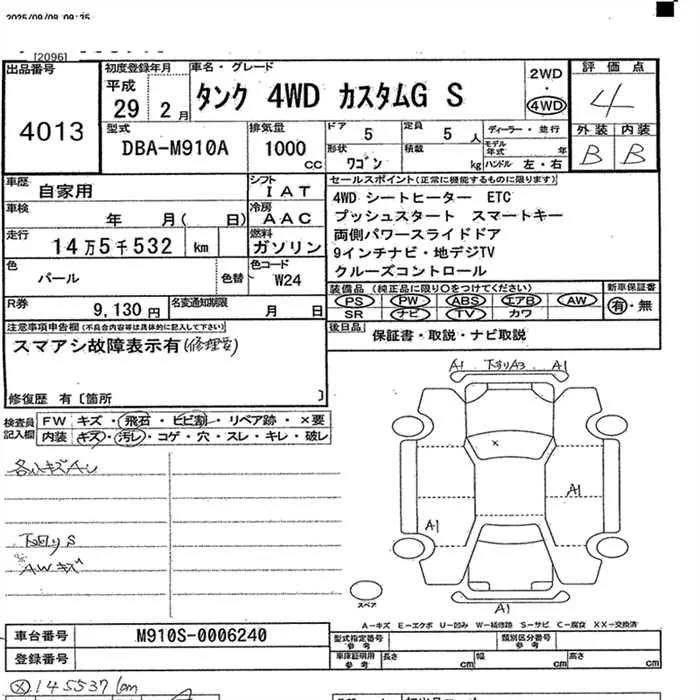 2025/09/08 09:35
[2096]
出品番号
4013
初度登録年月
平成
29 2 月
車名・グレード
タンク 4WD カスタムG S
2WD
・
4WD
評価点
4
外装 内装
B B
型式
DBA-M910A
排気量
1000
CC
ドア 5
定員 5 人
ディーラー・並行
形状 ワゴン
積載 kg
モデル年式 年
ハンドル 左・右
車歴 自家用
シフト
I A T
車検 年 月( 日)
冷房
A A C
走行 14万5千532 km
燃料
ガソリン
色 パール 色替
色コード
W24
R券 9,130 円
名変通知期限 月 日
セールスポイント(正常に機能するものに限ります)
4WD シートヒーター ETC
プッシュスタート スマートキー
両側パワースライドドア
9インチナビ・地デジTV
クルーズコントロール
装備品 (純正品に限り○をつけてください)
新車保証書
PS PW ABS エアB AW
SR ナビ TV カワ
有・無
後日品 保証書・取説・ナビ取説
注意事項申告欄 (不具合内容等は具体的に記入して下さい)
スマアシ故障表示有(修理要)
修復歴 有〔箇所 〕
検査員
記入欄
FW キズ・飛石・ヒビ割・リペア跡・×要
内装 キズ・汚レ・コゲ・穴・スレ・キレ・破レ
下回り S
AWキズ
A1 下回りA3 A1
×
A1
A1
スペア
A1
A－キズ E－エクボ U－凹み W－補修跡 S－サビ C－腐食 XX－交換済
車台番号 M910S-0006240
登録番号
型式指定番号
参考
類別区分番号
参考
車庫証明用
参考
長さ cm 幅 cm 高さ cm
ⓧ 145537km